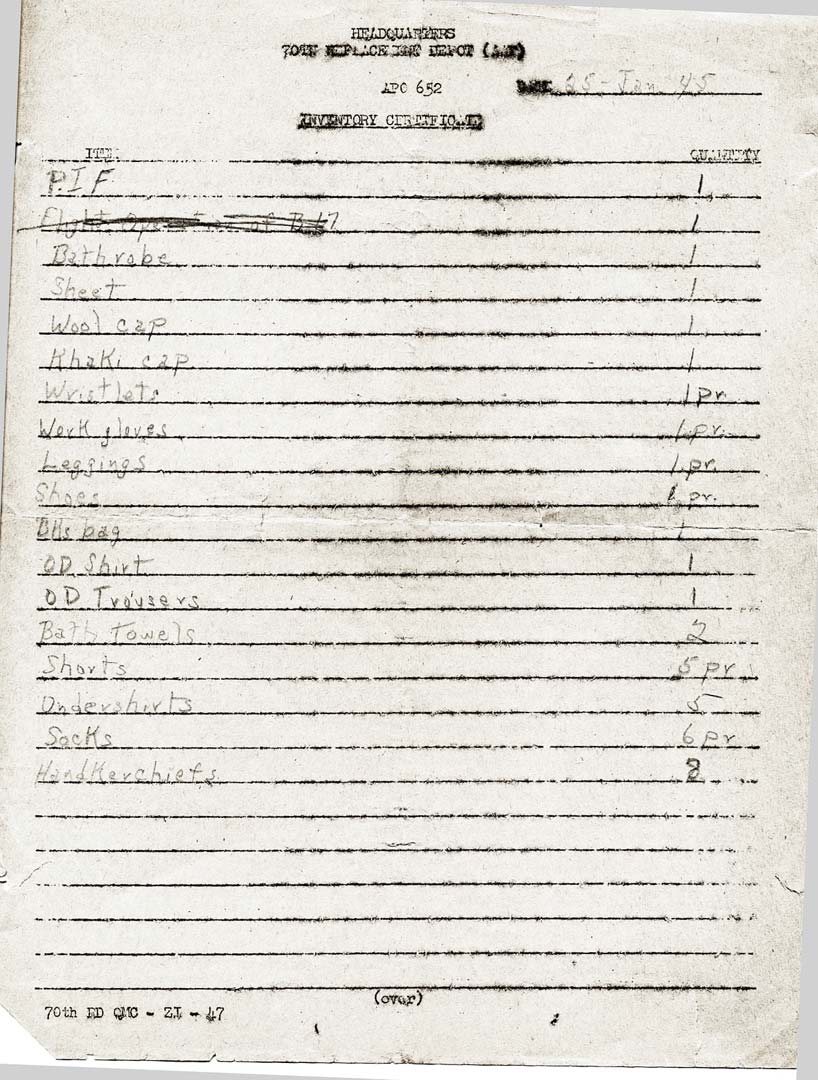 HEADQUARTERS
70TH REPLACEMENT DEPOT (AAF)
APO 652 DATE 25-Jan 45
INVENTORY CERTIFICATE
ITEM QUANTITY
P.I F 1
Flight Operation of B 17 1
Bathrobe 1
Sheet 1
Wool cap 1
Khaki cap 1
Wristlets 1 pr.
Work gloves 1 pr.
Leggings 1 pr.
Shoes 1 pr.
bag 1
OD Shirt 1
OD Trousers 1
Bath Towels 2
Shorts 5 pr
Undershirts 5
Socks 6 pr
Handkerchiefs
(over)
70th RD QMC - ZI - 47